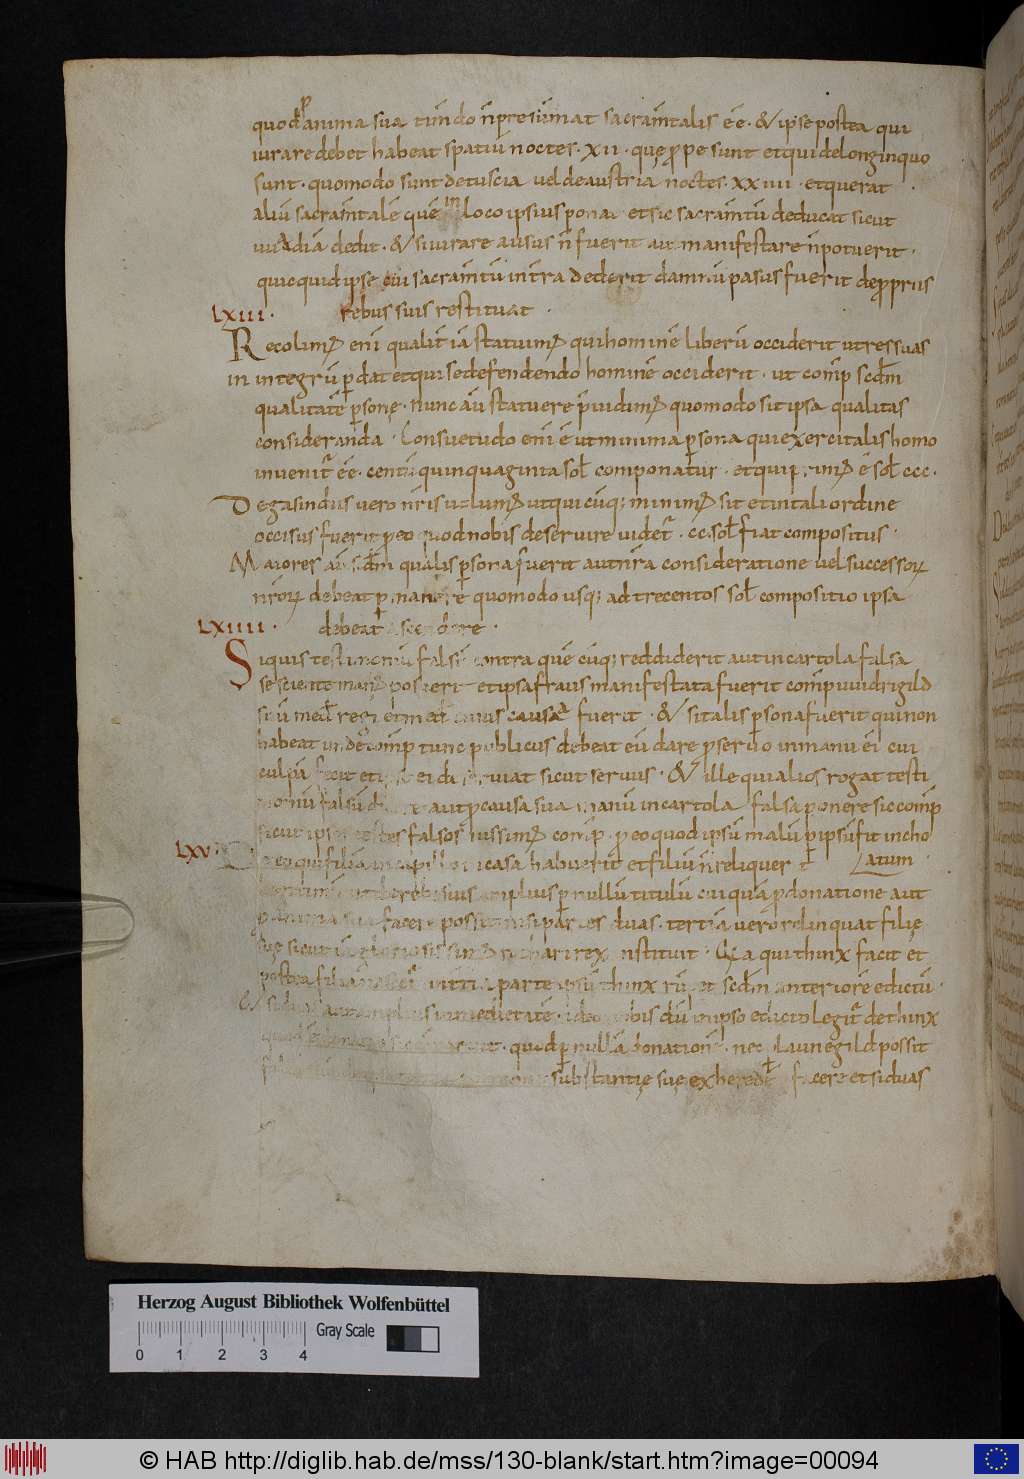 quod p anima sua timendo n̄ presūmat sacram̄talis ēē · & ipse postea qui
iurare debet habeat spatiū noctes · XII · quę prope sunt et qui de longinquo
sunt · quomodo sunt de tuscia vel de austria noctes · XXIIII · et querat
aliū sacram̄talē quē in loco ipsius ponat et sic sacram̄tū deducat sicut
uuadiā dedit · & si iurare ausus n̄ fuerit aut manifestare n̄ potuerit ·
quicquid ipse cui sacram̄tū intra dederit damnū pasus fuerit de propriis
LXIII · rebus suis restituat ·
Recolimus eni qualit̄ iā statuimus qui hominē liberū occiderit ut res suas
in integrū p̄dat et qui se defendendo hominē occiderit · ut comp̄ scd̄m
qualitatē p̄sonę · nunc aū statuere p̄uidimus quomodo sit ipsa qualitas
consideranda · Consuetudo eni ē ut minima p̄sona qui exercitalis homo
inuenit̄ ēē · centū quinquaginta sol̄ componatur · et qui primus ē sol̄ ccc ·
De gasindiis uero nr̄is uolumus ut qui cūq; minimus sit et in tali ordine
occisus fuerit p eo quod nobis deseruire uidet̄ · cc · sol̄ fiat compositus ·
Maiores aū scd̄m qualis p̄sona fuerit aut nr̄a consideratione vel successorum
nr̄orum debeat p̄manere quomodo usq; ad trecentos sol̄ compositio ipsa
LXIIII · debeat ascendere ·
Siquis testimoniū falsū contra quē cūq; reddiderit aut in cartola falsa
se sciente manus posuerit et ipsa fraus manifestata fuerit comp̄ uuidrigild
suū med̄ regi et med̄ cuius causa fuerit · & si talis p̄sona fuerit qui non
habeat unde comp̄ tunc publicus debeat eū dare p seruo in manu ei cui
culpā fecit et ipse ei deseruiat sicut seruus · & ille qui alios rogat testi
moniū falsū aut p causa sua manū in cartola falsa ponere sic comp̄
sicut ipse testes falsos iussimus comp̄ · p eo quod ipsū malū p ipsū fit incho
LXV · qui filiā in capillo in casa habuerit et filiū n̄ reliquerit Latum ·
rebus suis amplius p nullū titulū cuiquā p donatione aut
p anima sua facere possit nisi partes duas · tertiā uero relinquat filię
suę sicut iā gloriosissimus rothari rex instituit · Ita qui thinx facit et
postea filiā tertia parte ipsū thinx rūpat scd̄m anteriorē edictū ·
& si duas aut amplius in medietatē · ideo nobis dū in ipso edicto legit̄ de thinx
quod p nullā donationē · nec p launegild possit
substantię suę exheredetē facere et si duas
Herzog August Bibliothek Wolfenbüttel
Gray Scale
0 1 2 3 4
© HAB http://diglib.hab.de/mss/130-blank/start.htm?image=00094